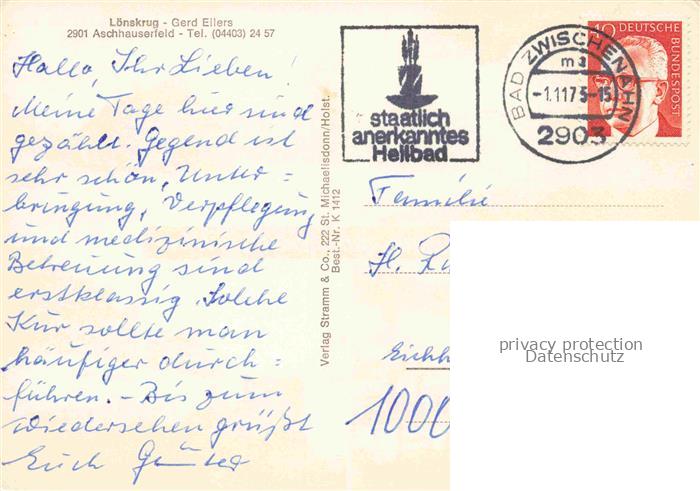 Lönskrug - Gerd Eilers
2901 Aschhauserfeld - Tel. (04403) 24 57
Hallo, Ihr Lieben!
Meine Tage hier sind
gezählt. Gegend ist
sehr schön, Unter=
bringung, Verpflegung
und medizinische
Betreuung sind
erstklassig. Solche
Kur sollte man
häufiger durch=
führen. - Bis zum
Wiedersehen grüßt
Euch Günter
Verlag Stramm & Co., 222 St. Michaelisdonn/Holst.
Best.-Nr. K 1412
staatlich
anerkanntes
Heilbad
BAD ZWISCHENAHN
ma
-1.1175-15
2903
40 DEUTSCHE
BUNDESPOST
Familie
H.
Eichh
1000
privacy protection
Datenschutz